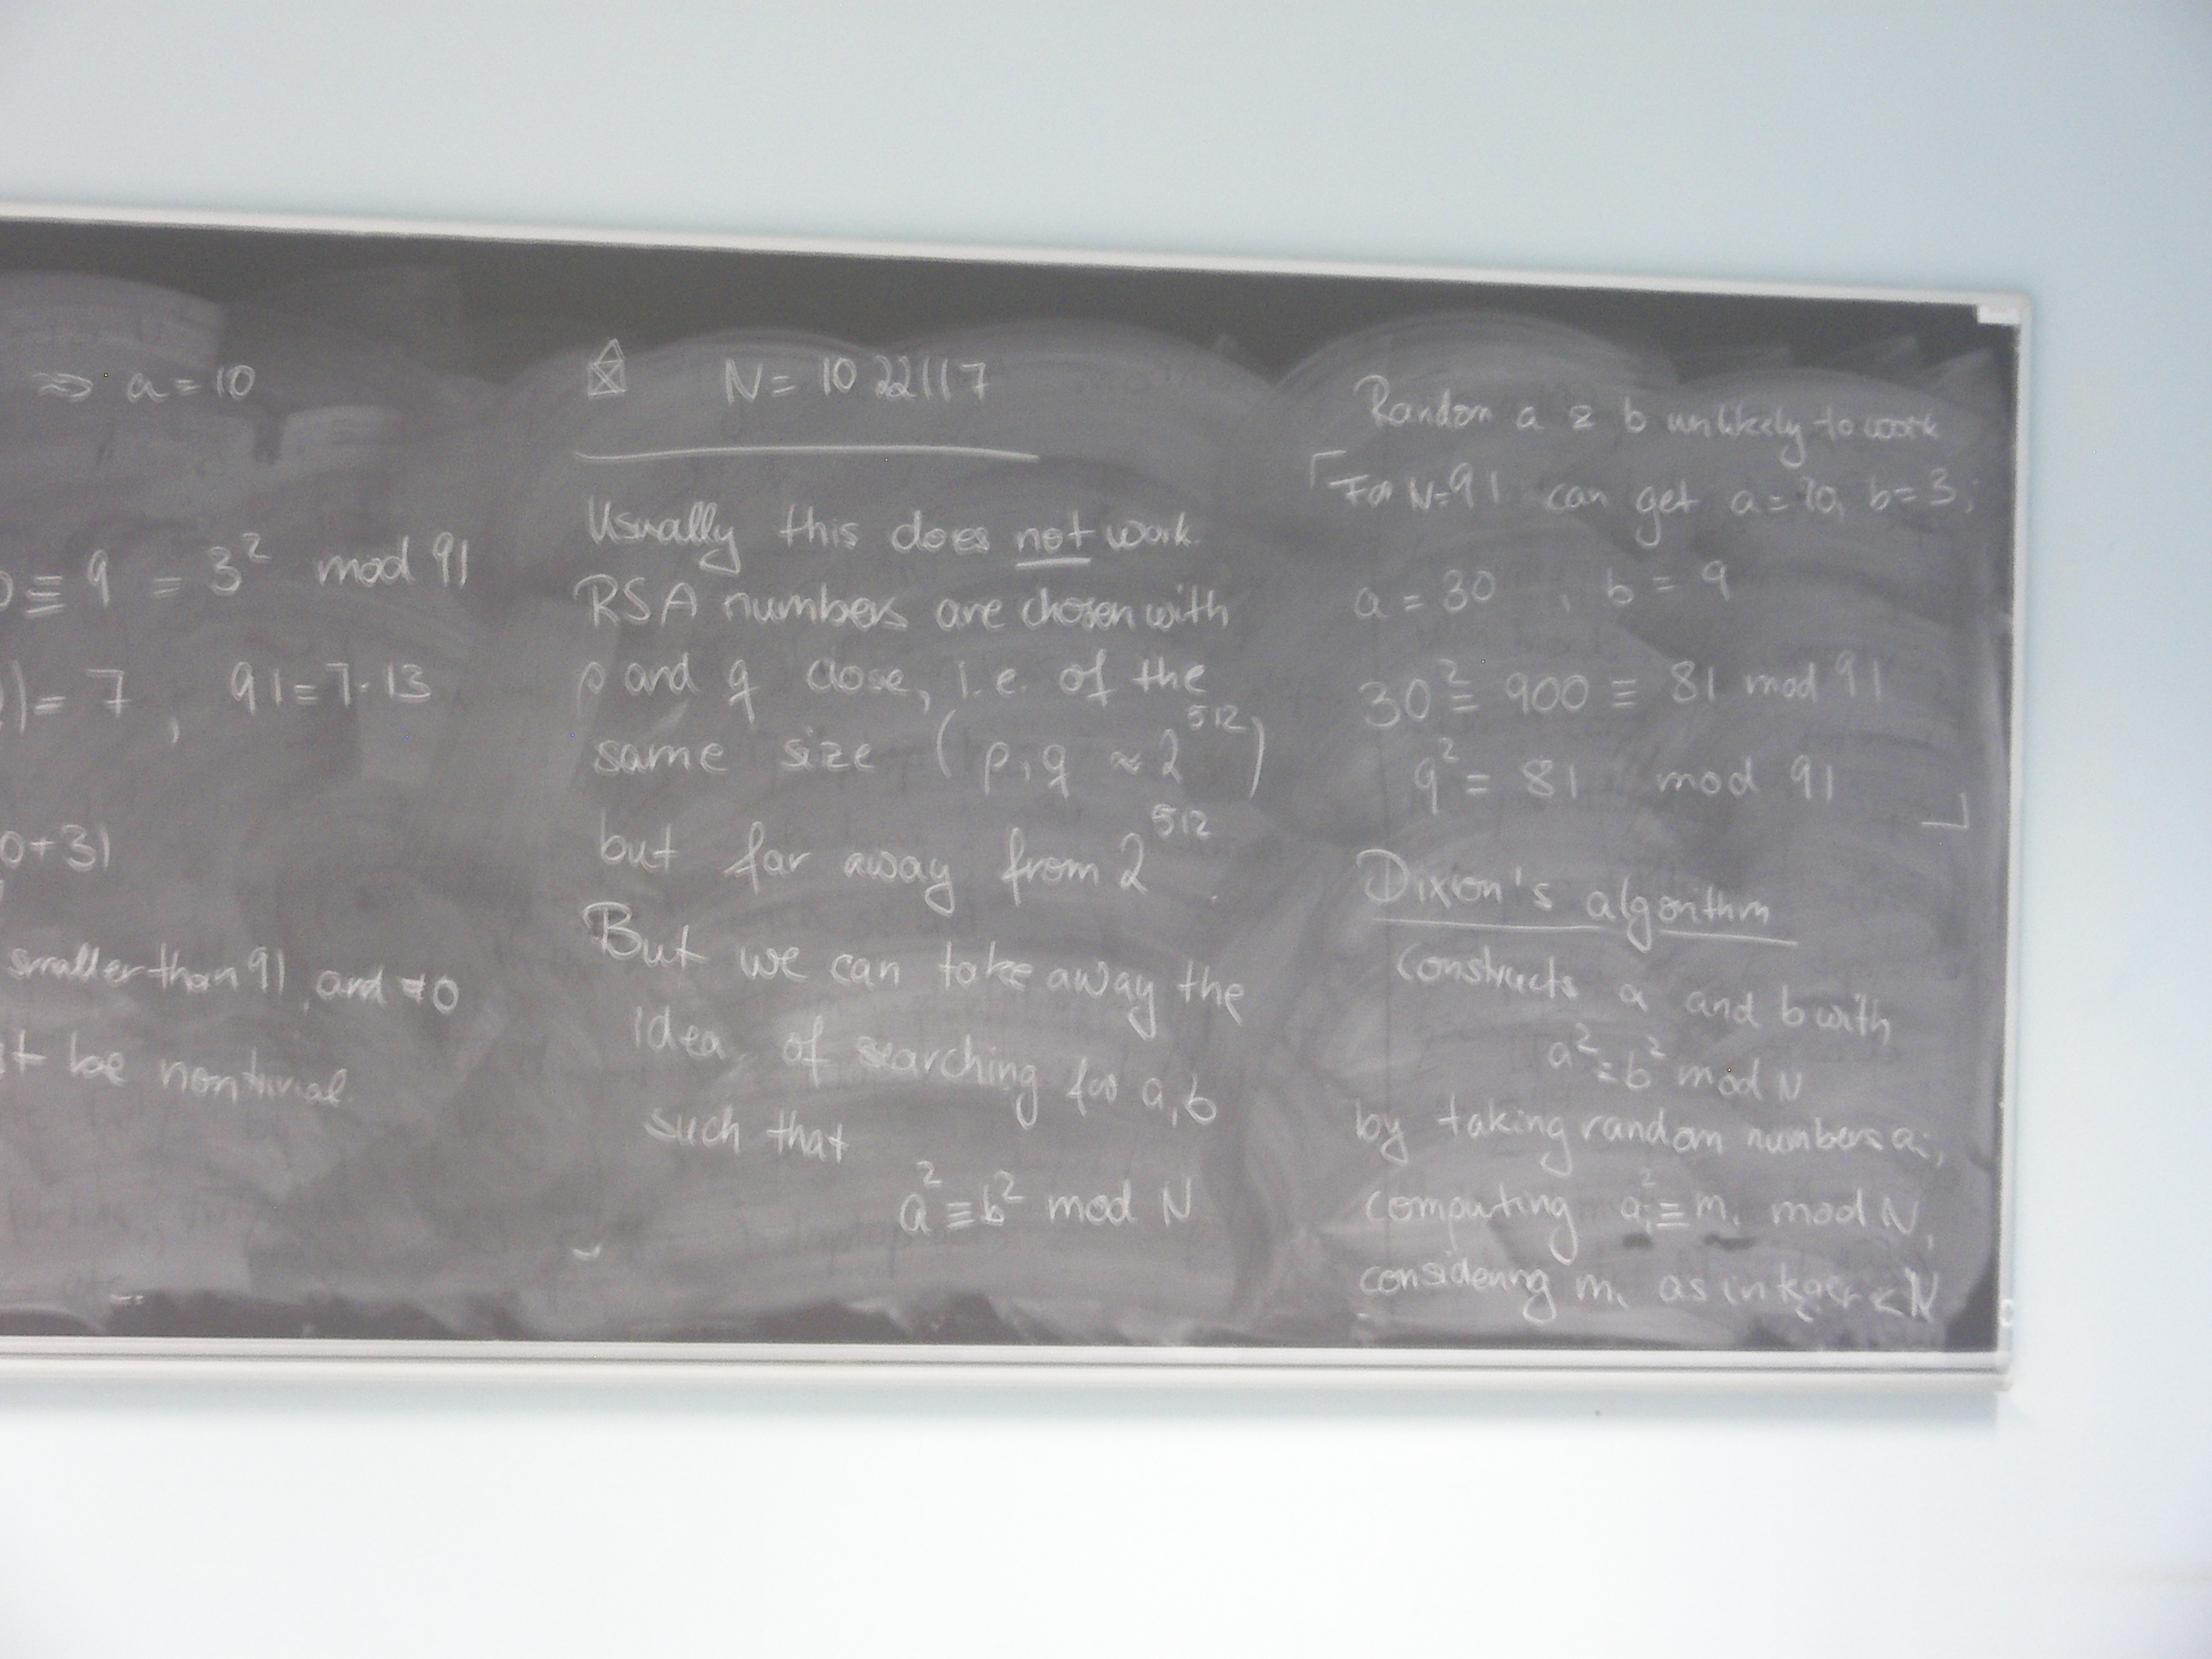 ⇒ a = 10
≡ 9 = 3² mod 91
) = 7 , 91 = 7·13
0+3)
smaller than 91, and ≠0
t be nontrivial.
N = 1022117
Usually this does not work.
RSA numbers are chosen with
p and q close, i.e. of the
same size (p, q ≈ 2^512)
but far away from 2^512.
But we can take away the
idea of searching for a, b
such that
a² ≡ b² mod N
Random a & b unlikely to work
⌈ For N=91 can get a=10, b=3;
a = 30 , b = 9
30² ≡ 900 ≡ 81 mod 91
9² = 81 mod 91 ⌋
Dixon's algorithm
Constructs a and b with
a² ≡ b² mod N
by taking random numbers aᵢ,
computing aᵢ² ≡ mᵢ mod N,
considering mᵢ as integer < N